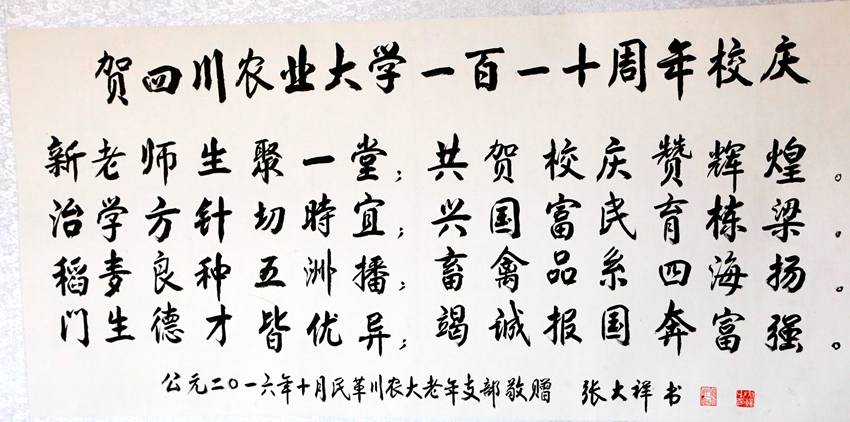 贺四川农业大学一百一十周年校庆
新老师生聚一堂；共贺校庆赞辉煌。
治学方针切時宜；兴国富民育栋梁。
稻麦良种五洲播；畜禽品系四海扬。
门生德才皆优异；竭诚报国奔富强。
公元二〇一六年十月民革川农大老年支部敬赠 张大祥书